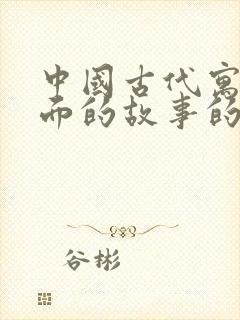 中國古代寓
而的故事的
谷彬